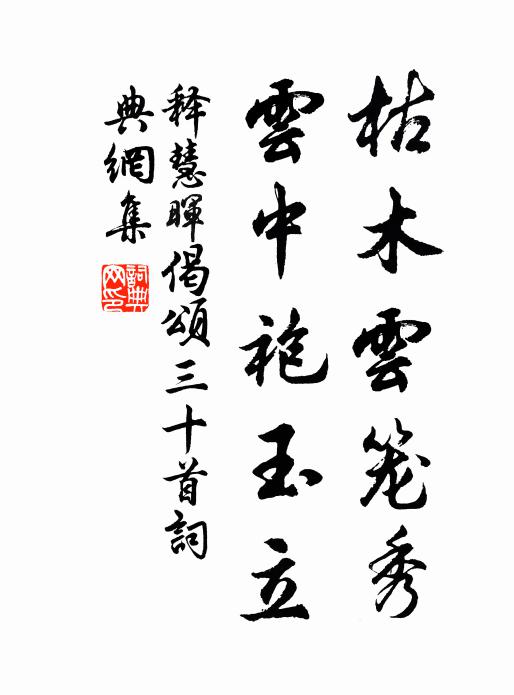 枯木雲笼秀
雲中袍玉立
释慧暉偈頌三十首詞
典網集
詞典网印